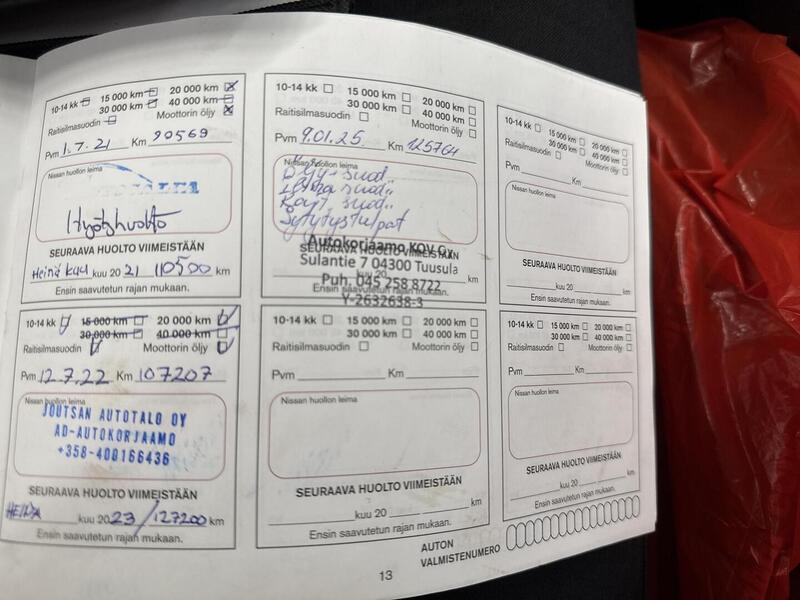 10-14 kk 15 000 km 20 000 km
30 000 km 40 000 km
Raitisilmasuodin Moottorin öljy
Pvm 1.7.21 Km 90569
Nissan huollon leima
Hyötyhuolto
SEURAAVA HUOLTO VIIMEISTÄÄN
Heinä kuu kuu 20 21 110500 km
Ensin saavutetun rajan mukaan.
10-14 kk 15 000 km 20 000 km
30 000 km 40 000 km
Raitisilmasuodin Moottorin öljy
Pvm 12.7.22 Km 107207
Nissan huollon leima
JOUTSAN AUTOTALO OY
AD-AUTOKORJAAMO
+358-400166436
SEURAAVA HUOLTO VIIMEISTÄÄN
HEINÄ kuu 20 23 / 127200 km
Ensin saavutetun rajan mukaan.
10-14 kk 15 000 km 20 000 km
30 000 km 40 000 km
Raitisilmasuodin Moottorin öljy
Pvm 9.01.25 Km 125764
Nissan huollon leima
Öljy + suod.
Ilma suod.
Rait. suod.
Sytytystulpat
Autokorjaamo KOV Oy
SEURAAVA HUOLTO VIIMEISTÄÄN
Sulantie 7 04300 Tuusula
kuu 20 km
Puh. 045 258 8722
Ensin saavutetun rajan mukaan.
Y-2632638-3
10-14 kk 15 000 km 20 000 km
30 000 km 40 000 km
Raitisilmasuodin Moottorin öljy
Pvm Km
Nissan huollon leima
SEURAAVA HUOLTO VIIMEISTÄÄN
kuu 20 km
Ensin saavutetun rajan mukaan.
10-14 kk 15 000 km 20 000 km
30 000 km 40 000 km
Raitisilmasuodin Moottorin öljy
Pvm Km
Nissan huollon leima
SEURAAVA HUOLTO VIIMEISTÄÄN
kuu 20 km
Ensin saavutetun rajan mukaan.
10-14 kk 15 000 km 20 000 km
30 000 km 40 000 km
Raitisilmasuodin Moottorin öljy
Pvm Km
Nissan huollon leima
SEURAAVA HUOLTO VIIMEISTÄÄN
kuu 20 km
Ensin saavutetun rajan mukaan.
AUTON
VALMISTENUMERO
13